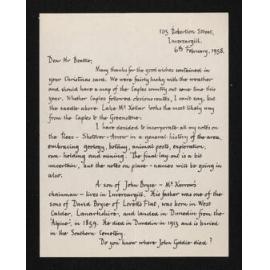 103 Robertson Street,
Invercargill.
6th February, 1958.
Dear Mr Beattie,
Many thanks for the good wishes contained in
your Christmas card. We were fairly lucky with the weather
and should have a map of the Caples country out some time this
year. Whether Caples followed obvious routes, I can't say, but
the saddle above Lake McKellar looks the most likely way
from the Caples to the Greenstone.
I have decided to incorporate all my notes on
the Rees - Shotover - Arrow in a general history of the area,
embracing geology, botany, animal pests, exploration,
run-holding and mining. The final lay-out is a bit
uncertain, but the notes on place-names will be going in
also.
A son of John Boyce - Mt
chairman - lives in Invercargill. His father was one of the
sons of David Boyce of Lovells Flat, was born in West
Calder, Lanarkshire, and landed in Dunedin from the
"Alpine", in 1859. He died in Dunedin in 1913 and is buried
in the Southern Cemetery.
Do you know where John Goldie died?